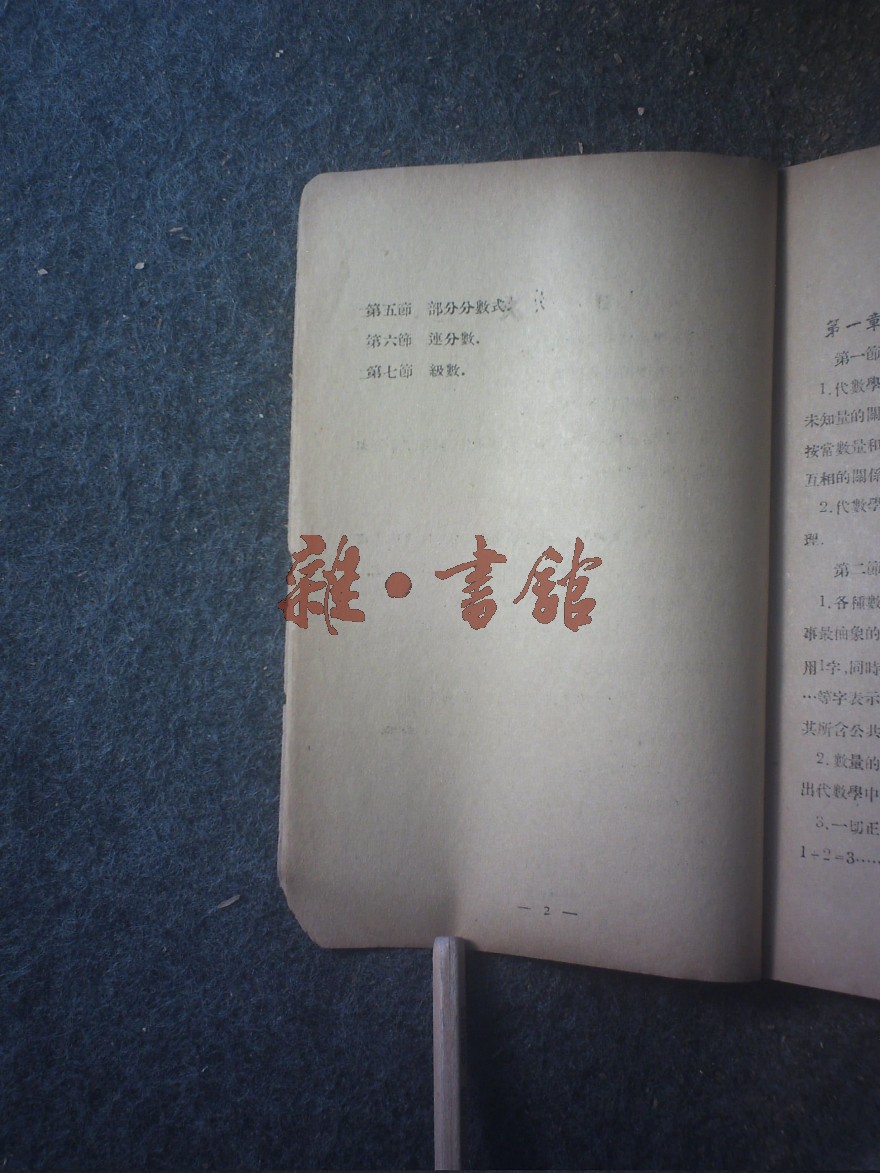 第五節　部分分數式.
第六節　連分數.
第七節　級數.
雜·書館
— 2 —
第一章
第一節
1.代數學
未知量的關
按當數量和
互相的關係
2.代數學
理.
第二節
1.各種數
事最抽象的
用字,同時
…等字表示
其所含公共
2.數量的
出代數學中
3.一切正
1-2=3……